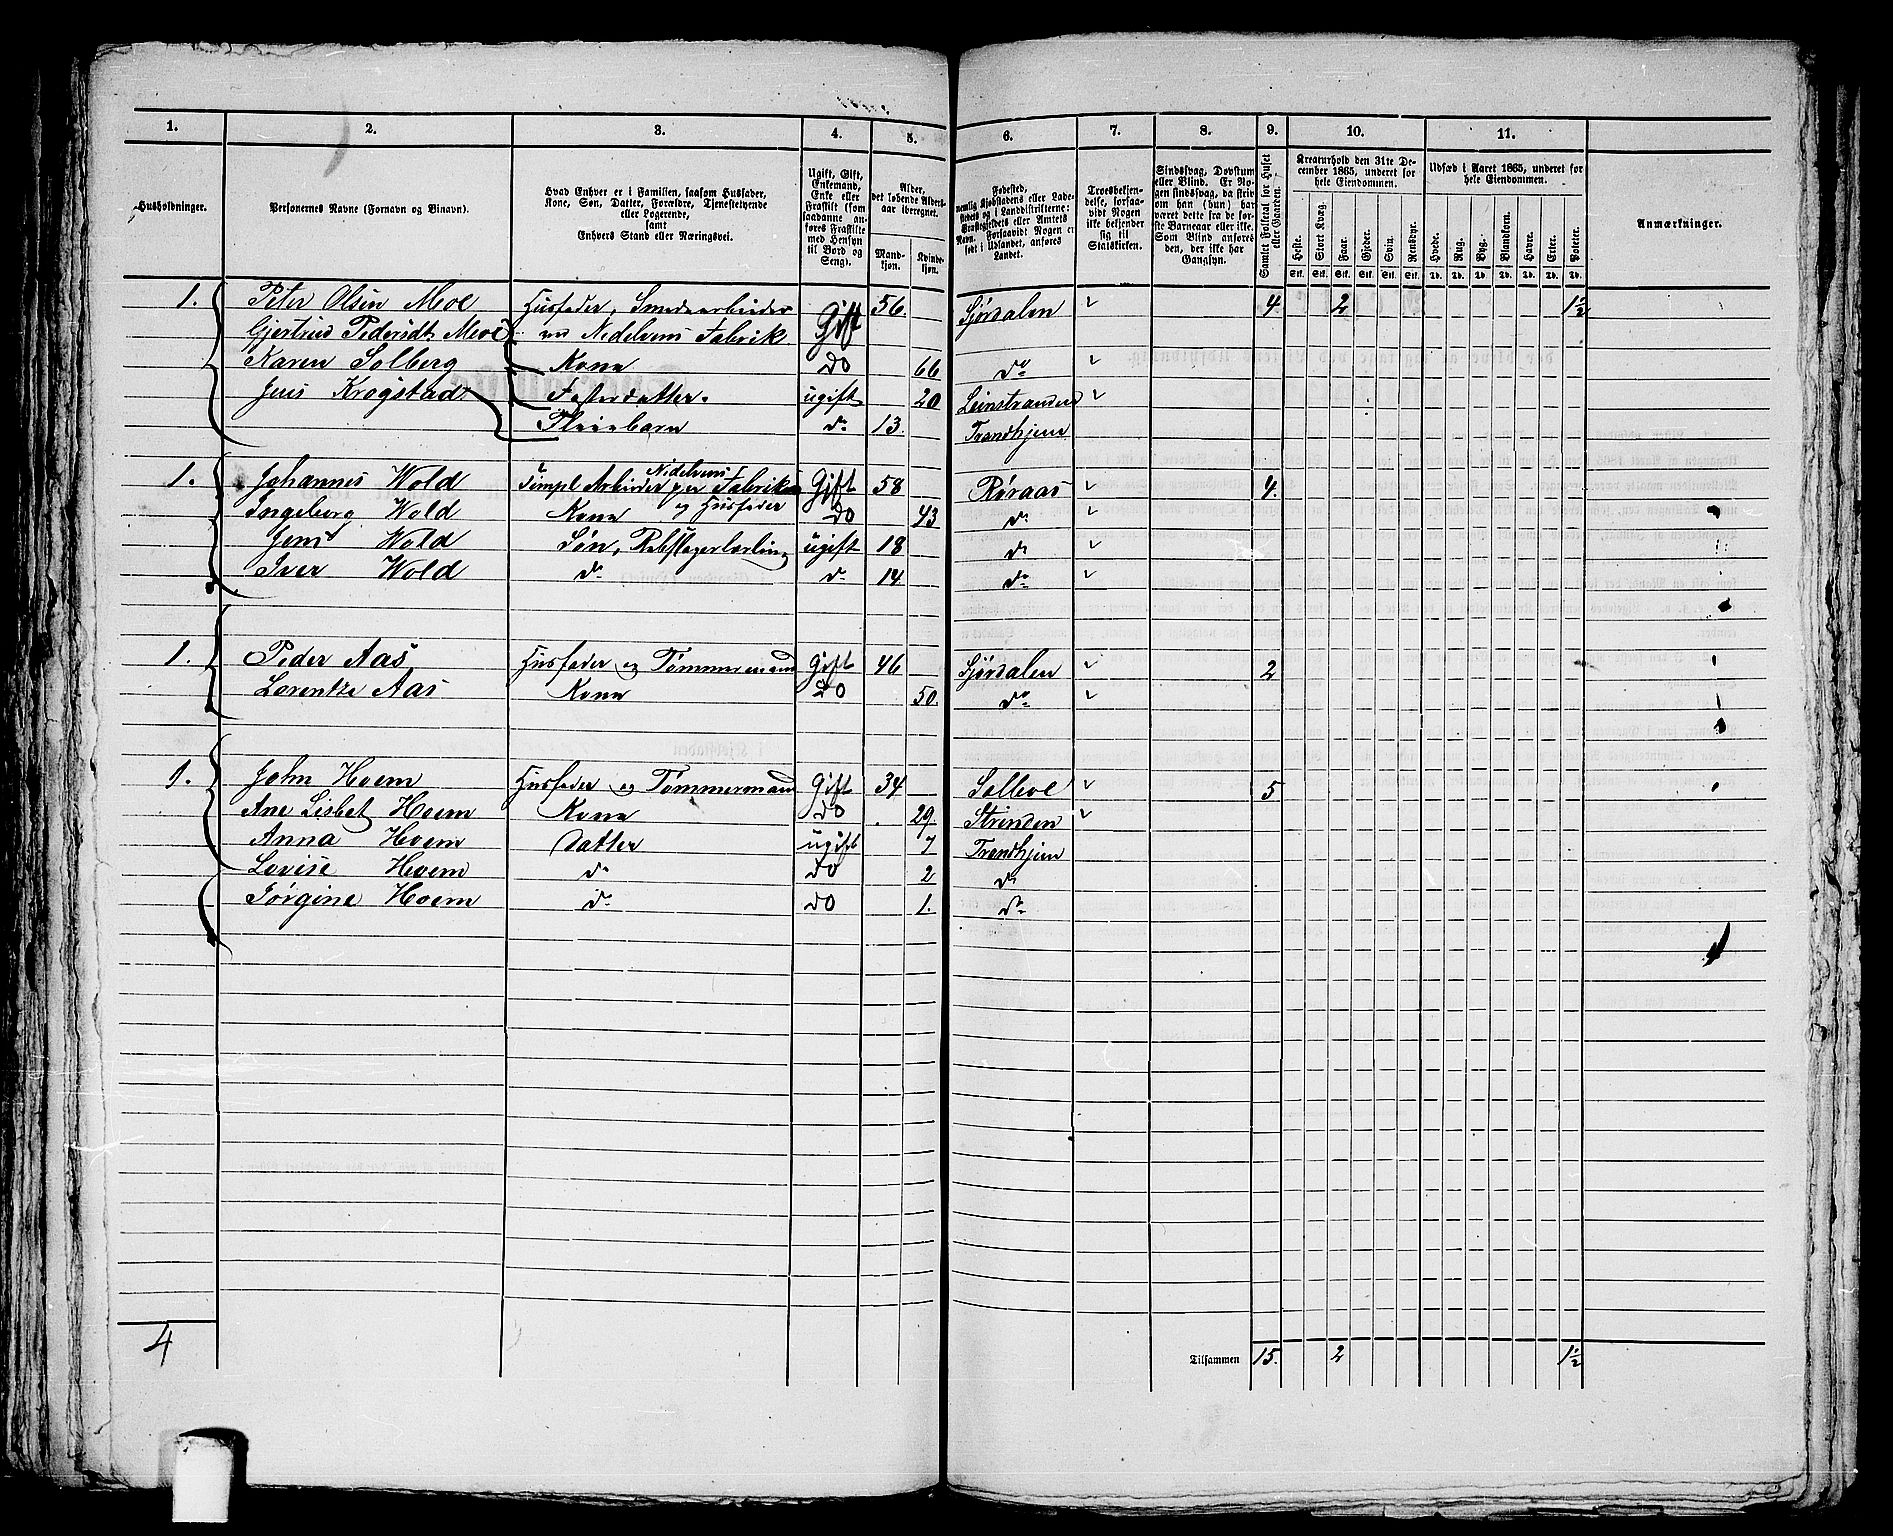 1. 2. 3. 4. 5. 6. 7. 8. 9. 10. 11.
Husholdninger.
Personernes Navne (Fornavn og Binavn).
Hvad Enhver er i Familien, saasom Husfader,
Kone, Søn, Datter, Forældre, Tjenestetyende
eller Logerende,
samt
Enhvers Stand eller Næringsvei.
Ugift, Gift,
Enkemand,
Enke eller
Fraskilt (som
saadanne an-
føres Fraskilte
med Hensyn
til Bord og
Seng).
Alder,
det løbende Alders-
aar iberegnet.
Mand-
kjøn.
Kvinde-
kjøn.
Fødested,
nemlig Kjøbstadens eller Lade-
stedets og i Landdistrikterne:
Præstegjeldets eller Amtets
Navn. Forsaavidt Nogen er
født i Udlandet, anføres
Landet.
Troesbekjen-
delse, forsaa-
vidt Nogen
ikke bekjender
sig til
Statskirken.
Sindssvag, Døvstum
eller Blind. Er No-
gen sindssvag, da skriv
om han (hun) har
været dette fra de før-
ste Barneaar eller ikke.
Som Blind anføres
den, der ikke har
Gangsyn.
Samlet Folketal for Huset
eller Gaarden.
Kreaturhold den 31te De-
cember 1865, underet for
hele Eiendommen.
Heste. Stort Kvæg. Faar. Gjeder. Svin. Rensdyr.
Stk. Stk. Stk. Stk. Stk. Stk.
Udsæd i Aaret 1865, underet for
hele Eiendommen.
Hvede. Rug. Byg. Blandkorn. Havre. Erter. Poteter.
Td. Td. Td. Td. Td. Td. Td.
Anmærkninger.
1. Peter Olsen Moe Husfader, Smedearbeider Gift 56. Sjørdalen 4 2 1½
Gjertrud Pedersdt: Moe ved Nidelvens Fabrik
Karen Solberg Kone Do 66 do
Jens Krogstad Fosterdatter. ugift 20 Leinstranden
Pleiebarn do 13. Trondhjem
1. Johannes Wold Simpel Arbeider per Nidelvens Fabrik Gift 58 Røraas 4.
og Husfader
Ingeborg Wold Kone Do 43 do
Jens Wold Søn, Rebslagerlærling ugift 18 do
Iver Wold do do 14. do
1. Peder Aas Husfader og Tømmermand Gift 46 Sjørdalen 2
Lorentze Aas Kone Do 50. do
1. John Hoem Husfader og Tømmermand Gift 34 Selboe 5
Ane Lisbet Hoem Kone Do 29. Strinden
Anna Hoem Datter ugift 7 Trondhjem
Lovise Hoem do Do 2 do
Jørgine Hoem do Do 1. do
4 Tilsammen 15. 2 1½